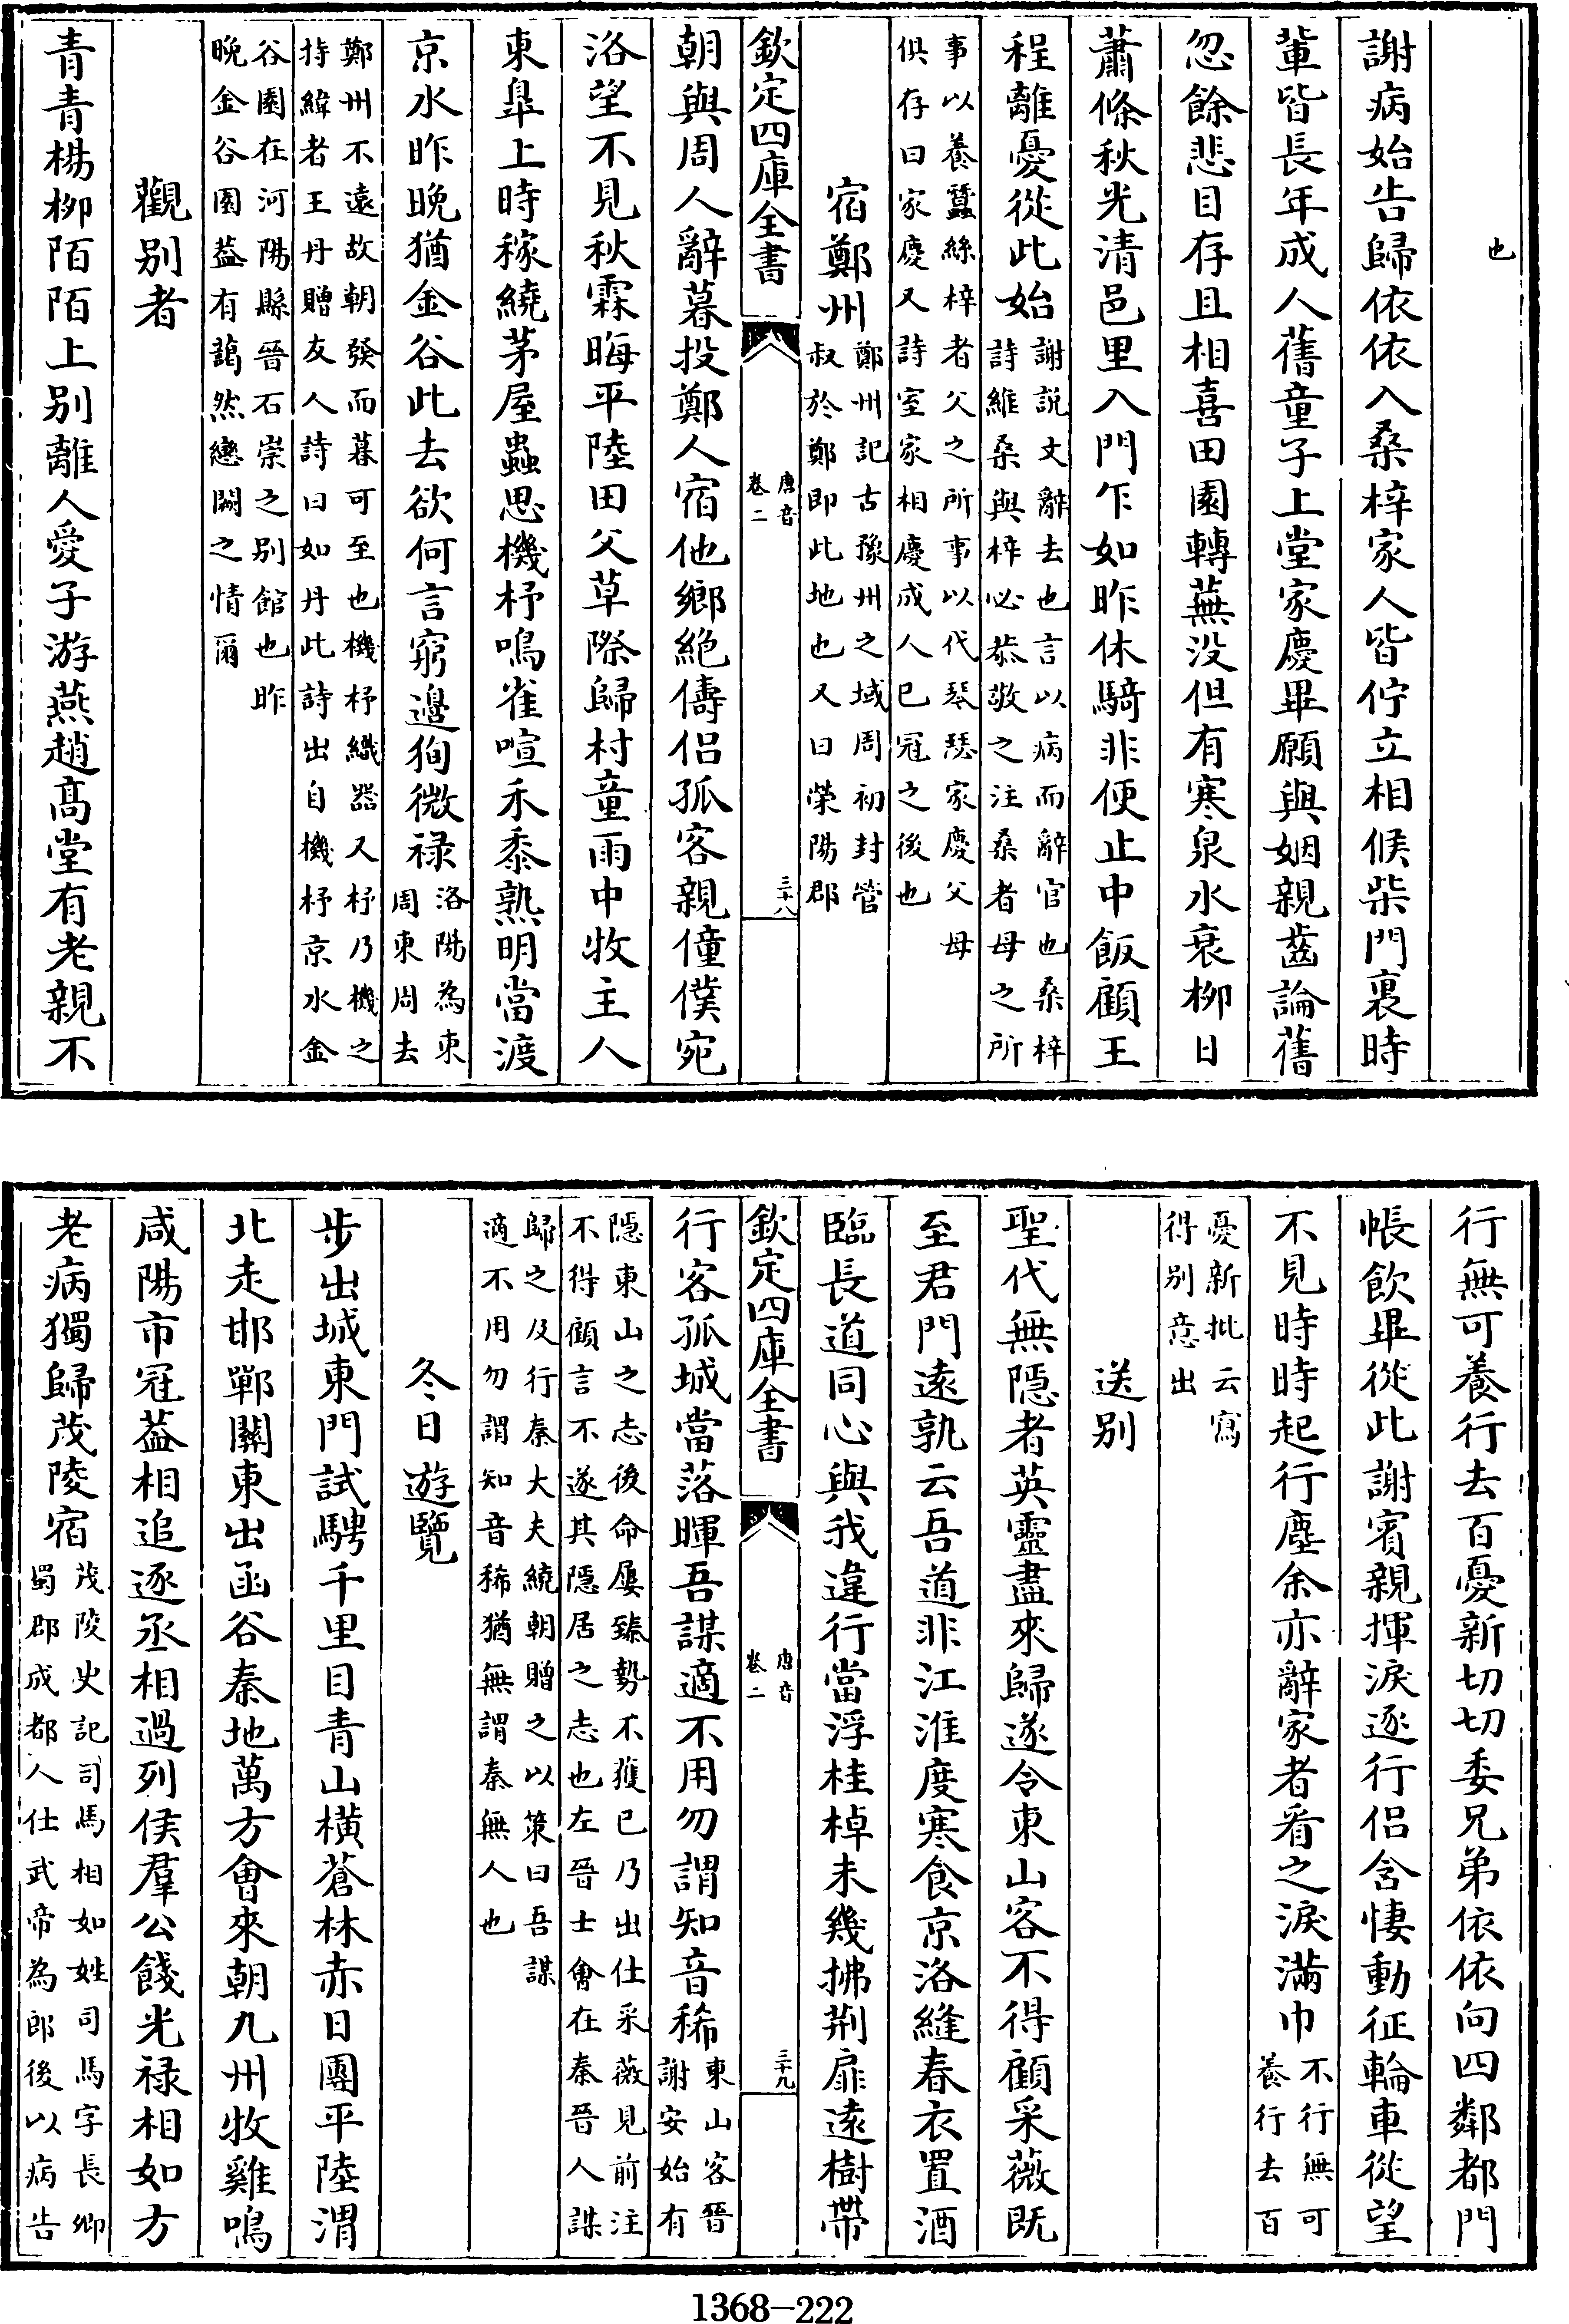 也
謝病始告歸依依入桑梓家人皆佇立相候柴門裏時
輩皆長年成人舊童子上堂家慶畢願與姻親齒論舊
忽餘悲目存且相喜田園轉蕪没但有寒泉水衰柳日
蕭條秋光清邑里入門乍如昨休騎非便止中飯顧王
程離憂從此始謝説文辭去也言以病而辭官也桑梓
詩維桑與梓必恭敬之注桑者母之所
事以養蠶絲梓者父之所事以代琴瑟家慶父母
俱存曰家慶又詩室家相慶成人已冠之後也
宿鄭州鄭州記古豫州之域周初封管
叔於鄭即此地也又曰榮陽郡
欽定四庫全書
唐音
卷二
三十八
朝與周人辭暮投鄭人宿他鄉絶儔侣孤客親僮僕宛
洛望不見秋霖晦平陸田父草際歸村童雨中牧主人
東臯上時稼繞茅屋蟲思機杼鳴雀喧禾黍熟明當渡
京水昨晩猶金谷此去欲何言窮邊狥微禄洛陽為東
周東周去
鄭州不遠故朝發而暮可至也機杼織器又杼乃機之
持緯者王丹贈友人詩曰如丹此詩出自機杼京水金
谷園在河陽縣晉石崇之别館也昨
晩金谷園葢有藹然戀闕之情爾
觀别者
青青楊柳陌陌上别離人愛子游燕趙髙堂有老親不
行無可養行去百憂新切切委兄弟依依向四鄰都門
帳飲畢從此謝賓親揮淚逐行侣含悽動征輪車從望
不見時時起行塵余亦辭家者看之淚滿巾不行無可
養行去百
憂新批云寫
得别意出
送别
聖代無隱者英靈盡來歸遂令東山客不得顧采薇既
至君門逺孰云吾道非江淮度寒食京洛縫春衣置酒
臨長道同心與我違行當浮桂棹未幾拂荆扉逺樹帶
欽定四庫全書
唐音
卷二
三十九
行客孤城當落暉吾謀適不用勿謂知音稀東山客晉
謝安始有
隱東山之志後命屢臻勢不獲已乃出仕采薇見前注
不得顧言不遂其隱居之志也左晉士會在秦晉人謀
歸之及行秦大夫繞朝贈之以策曰吾謀
適不用勿謂知音稀猶無謂秦無人也
冬日遊覽
步出城東門試騁千里目青山橫蒼林赤日團平陸渭
北走邯鄲關東出函谷秦地萬方會來朝九州牧雞鳴
咸陽市冠葢相追逐丞相過列侯羣公餞光禄相如方
老病獨歸茂陵宿茂陵史記司馬相如姓司馬字長卿
蜀郡成都人仕武帝為郎後以病告
1368—222